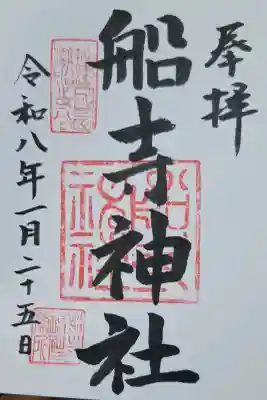 奉拝
船寺神社
令和八年一月二十五日